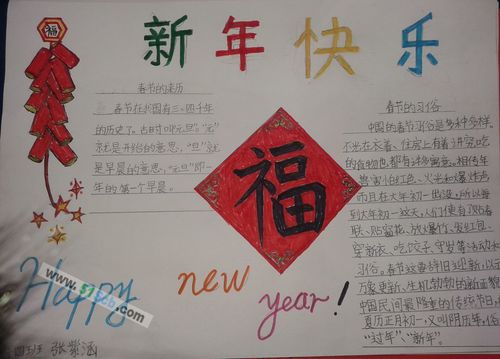 新年快乐
福
春节的来历
春节在我国有三、四千年
的历史了。古时叫"元旦"。"元"
就是开始的意思,"旦"就
是早晨的意思,"元旦"即一
年的第一个早晨。
福
春节的习俗
中国的春节习俗是多种多样。
不光在衣着、住房上有着讲究,吃
的食物也都有许多寓意。相传年
兽害怕红色、火光和爆炸声,
而且在大年初一出没,所以每
到大年初一这天,人们便有了贴春
联、贴窗花、放爆竹、发红包、
穿新衣、吃饺子、守岁等活动和
习俗。春节这喜辞旧迎新、以示
万象更新、生机勃勃的新面貌
中国民间最隆重的传统节日,
夏历正月初一,又叫阴历年,俗
"过年"、"新年"。
Happy new year!
www.51scb.com
四3班 张紫涵